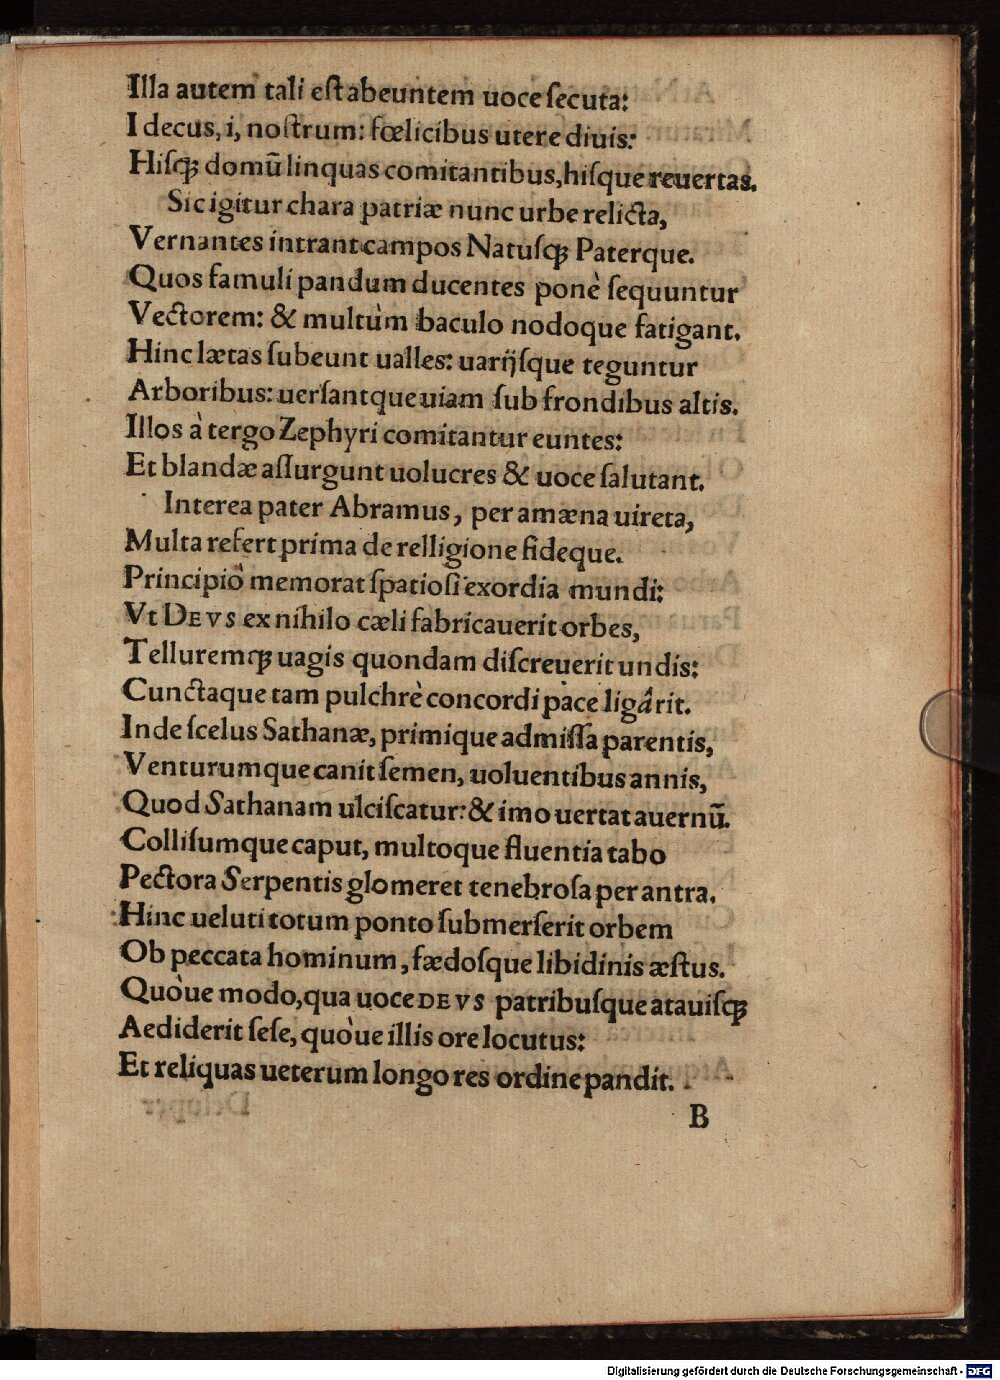 Illa autem tali eſt abeuntem uoce ſecuta:
I decus, i, noſtrum: fœlicibus utere diuis:
Hiſq; domū linquas comitantibus, hiſque reuertas.
Sic igitur chara patriæ nunc urbe relicta,
Vernantes intrant campos Natuſq; Paterque.
Quos famuli pandum ducentes ponè ſequuntur
Vectorem: & multùm baculo nodoque fatigant.
Hinc lætas ſubeunt ualles: uarijſque teguntur
Arboribus: uerſantque uiam ſub frondibus altis.
Illos à tergo Zephyri comitantur euntes:
Et blandæ aſſurgunt uolucres & uoce ſalutant.
Interea pater Abramus, per amæna uireta,
Multa refert prima de relligione fideque.
Principiò memorat ſpatioſi exordia mundi:
Vt DEVS ex nihilo cæli fabricauerit orbes,
Telluremq; uagis quondam diſcreuerit undis:
Cunctaque tam pulchrè concordi pace ligârit.
Inde ſcelus Sathanæ, primique admiſſa parentis,
Venturumque canit ſemen, uoluentibus annis,
Quod Sathanam ulciſcatur: & imo uertat auernū.
Colliſumque caput, multoque fluentia tabo
Pectora Serpentis glomeret tenebroſa per antra.
Hinc ueluti totum ponto ſubmerſerit orbem
Ob peccata hominum, fædoſque libidinis æſtus.
Quòue modo, qua uoce DEVS patribuſque atauiſq;
Aediderit ſeſe, quòue illis ore locutus:
Et reliquas ueterum longo res ordine pandit.
B
Digitalisierung gefördert durch die Deutsche Forschungsgemeinschaft - DFG